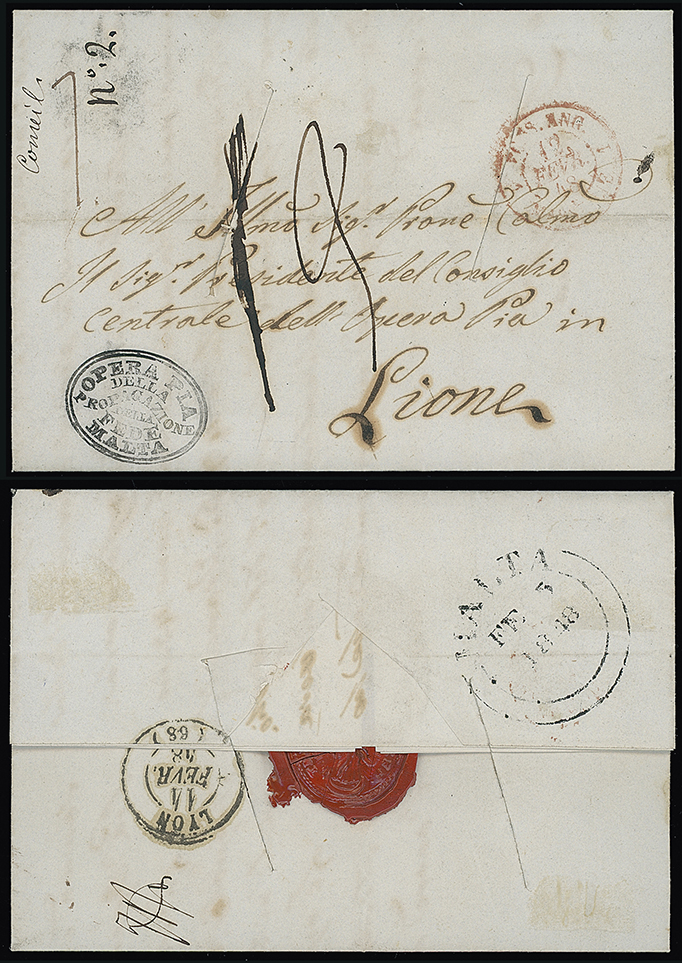 Conseil.
N.º 2.
POSS. ANG.
12
FEVR.
48
All' Illmo Sigr. Prone Colmo
Il Sigr. Presidente del Consiglio
Centrale dell'Opera Pia in
Lione
OPERA PIA
DELLA
PROPAGAZIONE
DELLA
FEDE
MALTA
MALTA
FE 5
1848
19
LYON
14
FEVR.
48
(68)